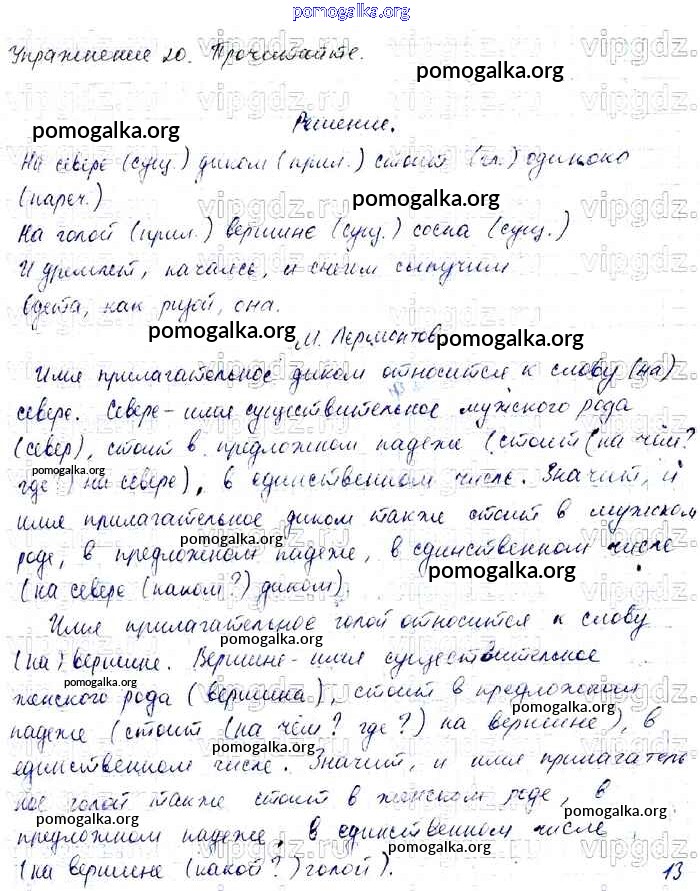 pomogalka.org
Упражнение 20. Прочитайте.
pomogalka.org
Решение.
pomogalka.org
На севере (сущ.) диком (прил.) стоит (гл.) одиноко
(нареч.)
pomogalka.org
На голой (прил.) вершине (сущ.) сосна (сущ.)
И дремлет, качаясь, и снегом сыпучим
Одета, как ризой, она.
pomogalka.org
М. Лермонтов
pomogalka.org
Имя прилагательное диком относится к слову (на)
севере. Севере - имя существительное мужского рода
(север), стоит в предложном падеже (стоит (на чём?
pomogalka.org
где?) на севере), в единственном числе. Значит, и
имя прилагательное диком также стоит в мужском
pomogalka.org
роде, в предложном падеже, в единственном числе
pomogalka.org
(на севере (каком?) диком).
Имя прилагательное голой относится к слову
pomogalka.org
(на) вершине. Вершине - имя существительное
pomogalka.org
женского рода (вершина), стоит в предложном
pomogalka.org
падеже (стоит (на чём? где?) на вершине), в
pomogalka.org
единственном числе. Значит, и имя прилагатель
ное голой также стоит в женском роде, в
pomogalka.org
pomogalka.org
предложном падеже, в единственном числе
pomogalka.org
(на вершине (какой?) голой).
13